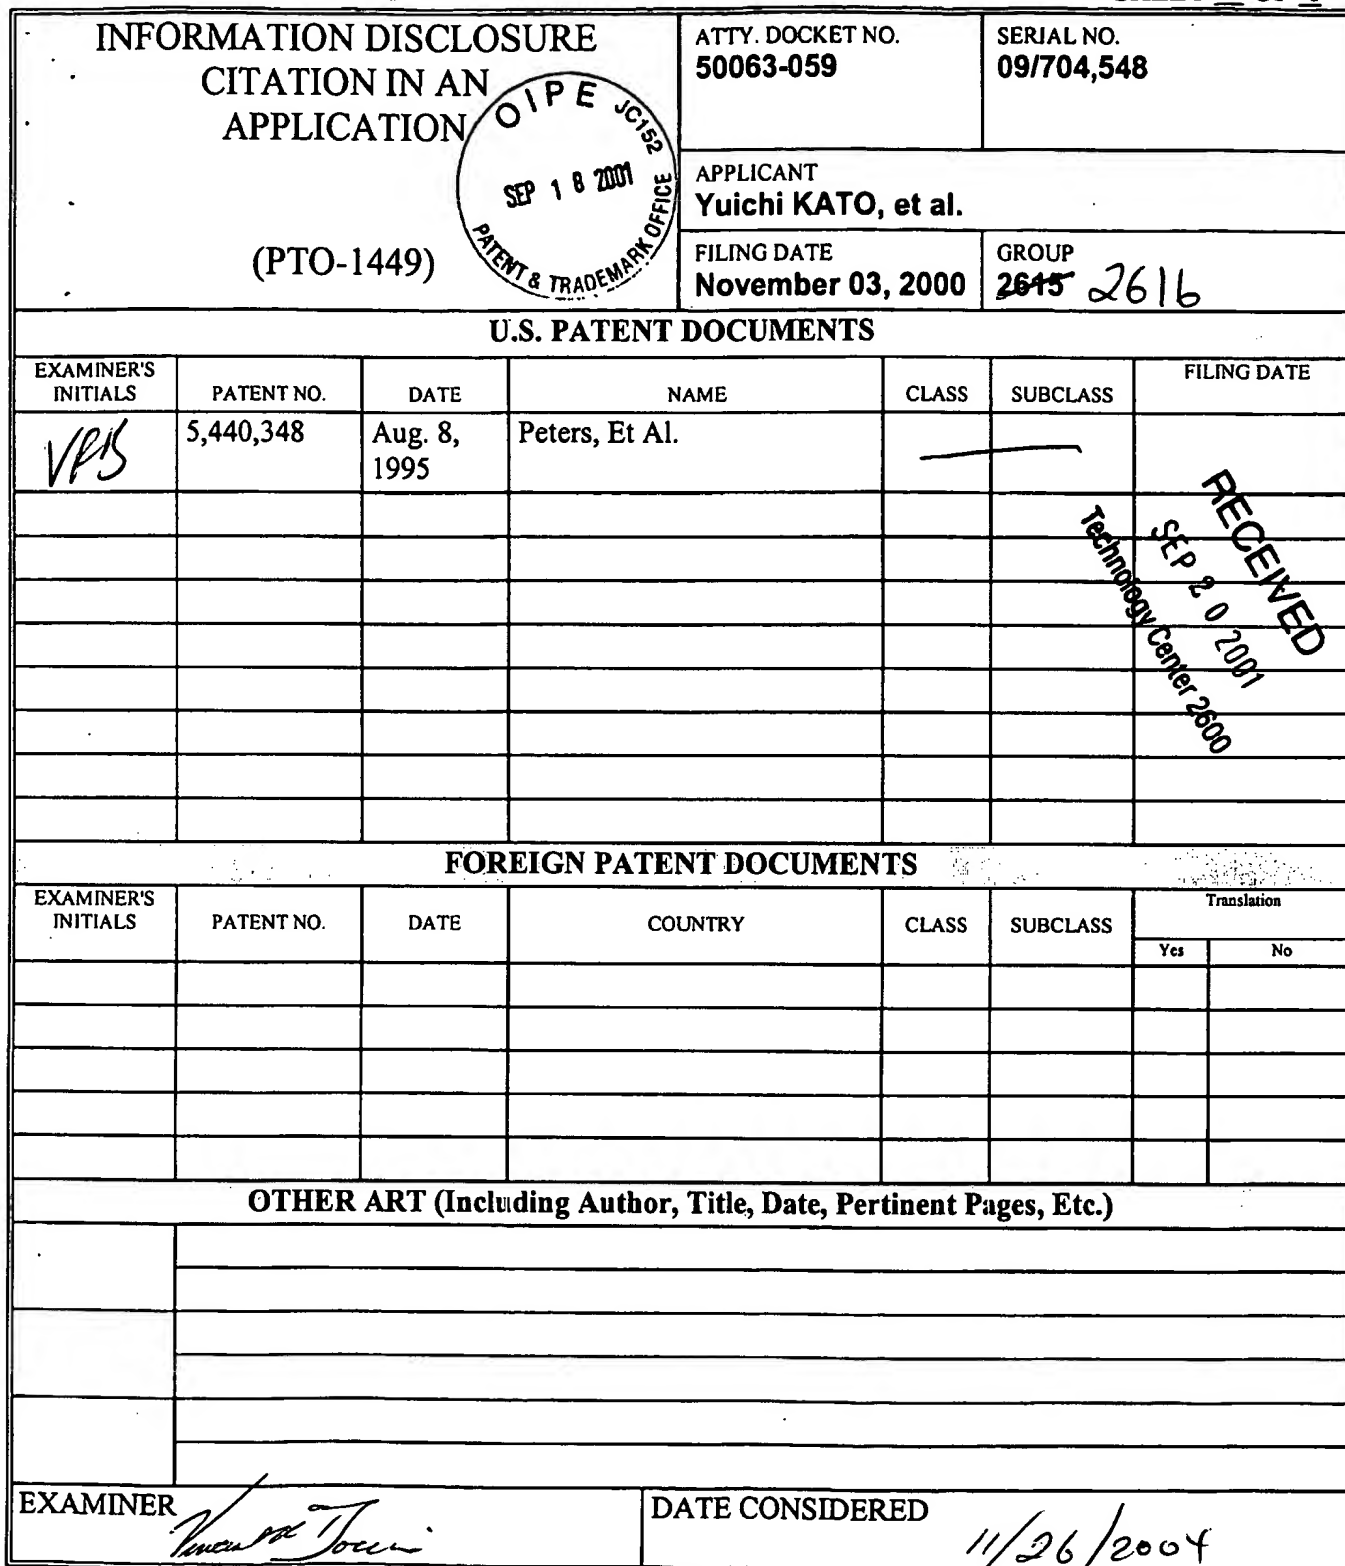 INFORMATION DISCLOSURE
CITATION IN AN
APPLICATION
(PTO-1449)
OIPE JC152
SEP 18 2001
PATENT & TRADEMARK OFFICE
ATTY. DOCKET NO.
50063-059
SERIAL NO.
09/704,548
APPLICANT
Yuichi KATO, et al.
FILING DATE
November 03, 2000
GROUP
2615 2616
U.S. PATENT DOCUMENTS
EXAMINER'S
INITIALS PATENT NO. DATE NAME CLASS SUBCLASS FILING DATE
VPB 5,440,348 Aug. 8, Peters, Et Al.
1995
RECEIVED
SEP 20 2001
Technology Center 2600
FOREIGN PATENT DOCUMENTS
EXAMINER'S
INITIALS PATENT NO. DATE COUNTRY CLASS SUBCLASS Translation
Yes No
OTHER ART (Including Author, Title, Date, Pertinent Pages, Etc.)
EXAMINER
DATE CONSIDERED
11/26/2004